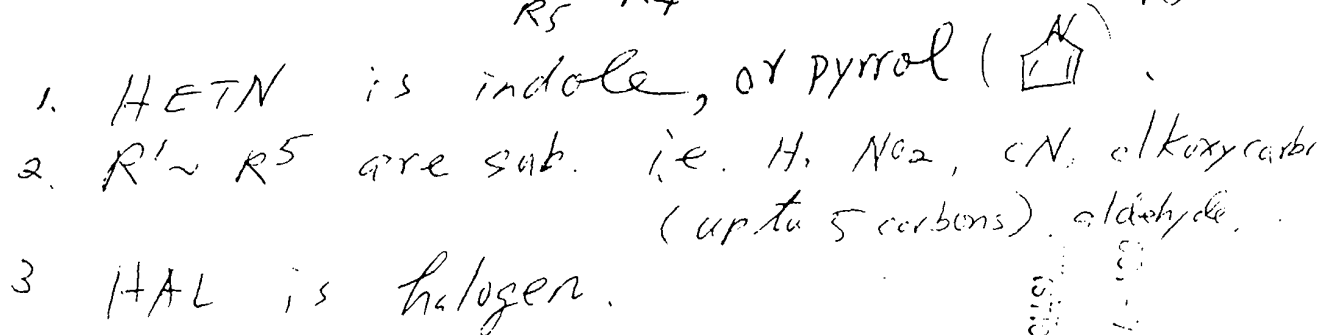 R5 R4
1. HETN is indole, or pyrrol ( N ) .
2. R' ~ R5 are sub. i.e. H, NO2, CN, alkoxycarbo
(up to 5 carbons), aldehyde.
3 HAL is halogen.